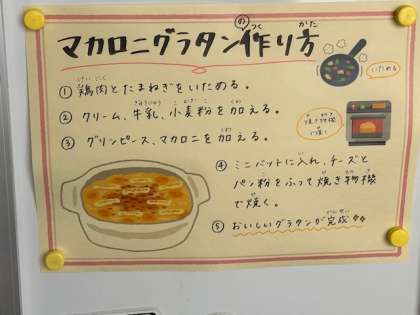 マカロニグラタンの作り方
① 鶏肉とたまねぎをいためる。
② クリーム、牛乳、小麦粉を加える。
③ グリンピース、マカロニを加える。
④ ミニバットに入れ、チーズと
パン粉をふって焼き物機
で焼く。
⑤ おいしいグラタンが完成
いためる
焼き物機
で焼く